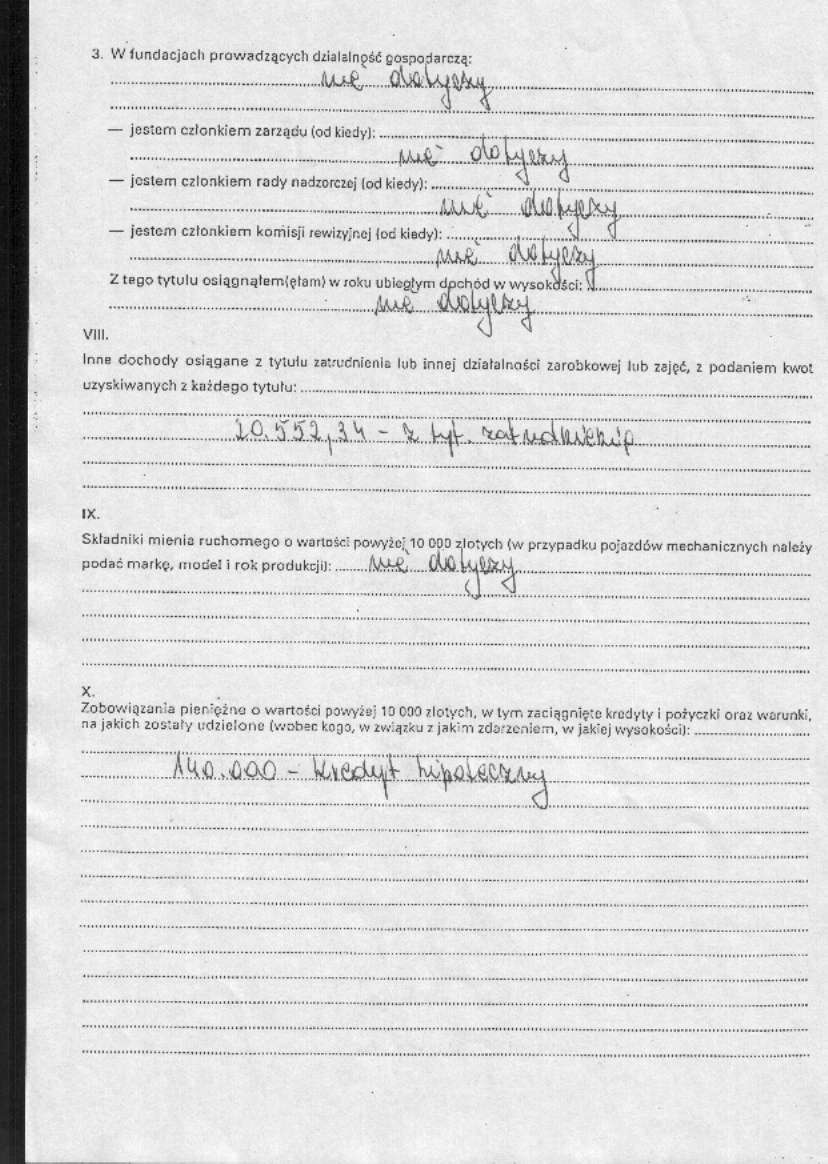 3. W fundacjach prowadzących działalność gospodarczą:
nie dotyczy
— jestem członkiem zarządu (od kiedy):
nie dotyczy
— jestem członkiem rady nadzorczej (od kiedy):
nie dotyczy
— jestem członkiem komisji rewizyjnej (od kiedy):
nie dotyczy
Z tego tytułu osiągnąłem(ęłam) w roku ubiegłym dochód w wysokości:
nie dotyczy
VIII.
Inne dochody osiągane z tytułu zatrudnienia lub innej działalności zarobkowej lub zajęć, z podaniem kwot
uzyskiwanych z każdego tytułu:
20.552,34 - z tyt. zatrudnienia
IX.
Składniki mienia ruchomego o wartości powyżej 10 000 złotych (w przypadku pojazdów mechanicznych należy
podać markę, model i rok produkcji): nie dotyczy
X.
Zobowiązania pieniężne o wartości powyżej 10 000 złotych, w tym zaciągnięte kredyty i pożyczki oraz warunki,
na jakich zostały udzielone (wobec kogo, w związku z jakim zdarzeniem, w jakiej wysokości):
140.000 - kredyt hipoteczny